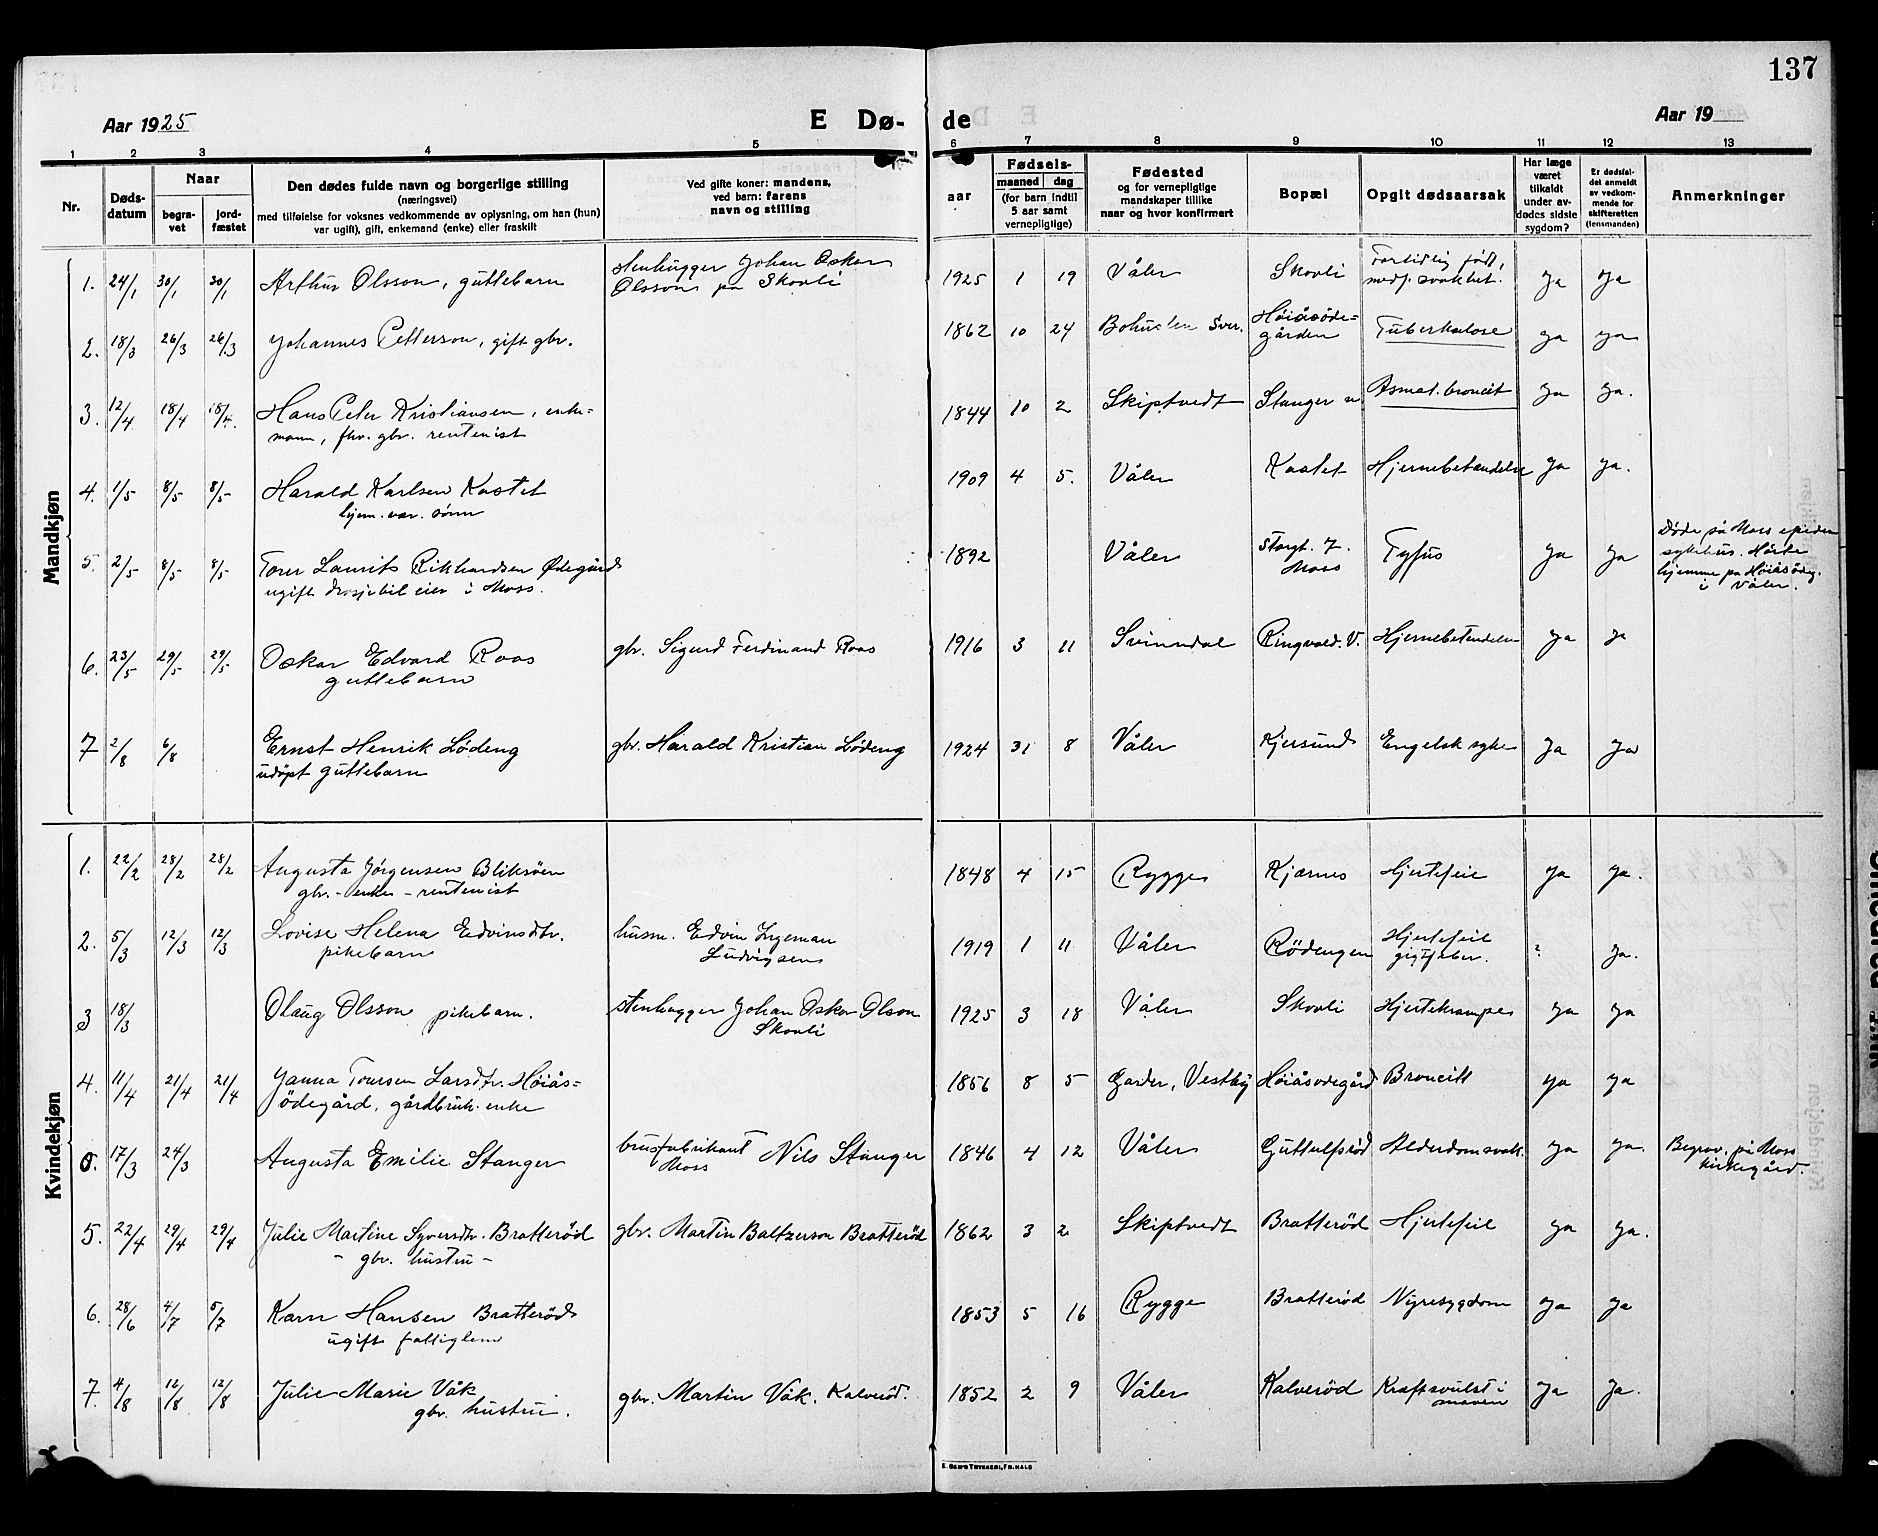 137
Aar 1925
E Dø-
de
Aar 19
1 2 3 4 5 6 7 8 9 10 11 12 13
Nr.
Døds-
datum
Naar
begra-
vet
jord-
fæstet
Den dødes fulde navn og borgerlige stilling
(næringsvei)
med tilføielse for voksnes vedkommende av oplysning, om han (hun)
var ugift), gift, enkemand (enke) eller fraskilt
Ved gifte koner: mandens,
ved barn: farens
navn og stilling
Fødsels-
aar
maaned dag
(for barn indtil
5 aar samt
vernepligtige)
Fødested
og for vernepligtige
mandskaper tillike
naar og hvor konfirmert
Bopæl
Opgit dødsaarsak
Har læge
været
tilkaldt
under av-
dødes sidste
sygdom?
Er dødsfal-
det anmeldt
av vedkom-
mende for
skifteretten
(lensmanden)
Anmerkninger
Mandkjøn
1. 24/1 30/1 30/1 Arthur Olsson, guttebarn
stenhugger Johan Oskar
Olsson på Skovli
1925 1 19 Våler Skovli
Fortidlig født,
medf. svakhet.
ja ja
2. 18/3 26/3 26/3 Johannes Petterson, gift gbr.
1862 10 24 Bohuslen Sver.
Höiåsöde-
gården
Tuberkulose ja ja
3. 12/4 18/4 18/4. Hans Peter Kristiansen, enke-
mann, fhv. gbr. rentenist
1844 10 2 Skiptvedt Stanger n Asmat. broncit ja ja.
4. 1/5 8/5 8/5 Harald Karlsen Kastet
hjem. vær. sönn
1909 4 5. Våler Kastet Hjernebetendelse ja ja.
5. 2/5 8/5 8/5 Torer Laurits Rikhardsen Ødegård
ugift drosjebileier i Moss.
1892 Våler
Storgt. 7.
Moss
Tyfus ja ja
Døde på Moss epidem
sykehus. Hörte
hjemme på Höiåsödeg.
i Våler.
6. 23/5 29/5 29/5 Oskar Edvard Roos
guttebarn
gbr. Sigurd Ferdinand Roos
1916 3 11 Svinndal Ringvold. V. Hjernebetendelse ja ja
7 2/8 6/8 Ernst Henrik Lödeng
udöpt guttebarn
gbr. Harald Kristian Lödeng
1924 31 8 Våler Kjersund Engelsk syke ja ja
Kvindekjøn
1. 22/2 28/2 28/2 Augusta Jörgensen Bliksöen
gbr. - enke - rentenist
1848 4 15 Rygge Kjærnes Hjertefeil ja ja.
2. 5/3 12/3 12/3 Lovise Helena Edvinsdtr.
pikebarn
husm. Edvin Ingeman
Ludvigsen
1919 1 11 Våler Rödengen
Hjertefeil
gigtfeber.
? ja.
3 18/3 Olaug Olsson pikebarn.
stenhugger Johan Oskar Olson
Skovli
1925 3 18 Våler Skovli Hjertekrampe ja ja
4. 11/4 21/4 21/4 Janna Toursen Larsdtr. Höiås-
ödegård, gårdbruk. enke
1856 8 5 Garder, Vestby Höiåsodegård Broncitt ja ja
17/3 24/3 Augusta Emilie Stanger
brusfabrikant Nils Stanger
Moss
1846 4 12 Våler Guttulfsröd Alderdomsvak. ja ja.
Begrav. på Moss
kirkegård.
5. 22/4 29/4 29/4 Julie Martine Syversdtr. Bratteröd
- gbr. hustru -
gbr. Martin Baltzerson Bratteröd
1862 3 2 Skiptvedt Bratteröd Hjertefeil ja ja.
6. 28/6 4/7 5/7 Karn Hansen Bratteröd
ugift fattiglem
1853 5 16 Rygge Bratteröd Nyresygdom ja ja
7. 4/8 12/8 12/8 Julie Marie Våk
gbr. hustru.
gbr. Martin Våk. Kalveröd.
1852 2 9 Våler Kalveröd
Kræftsvulst i
maven
ja ja.
E. SEM'S TRYKKERI, FR.HALD